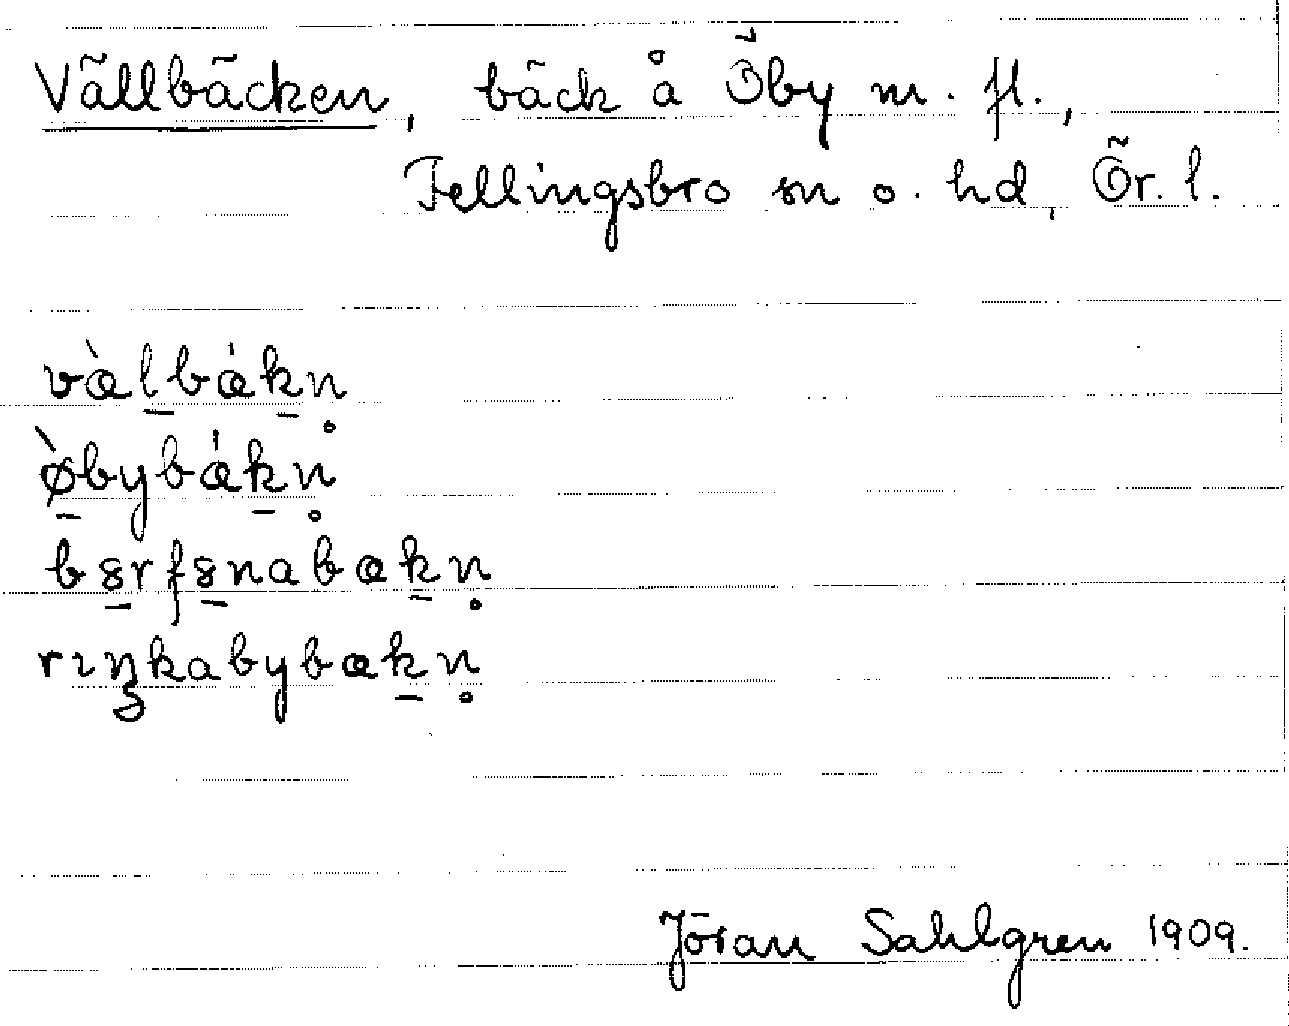 Vällbäcken, bäck å Öby m. fl.,
Fellingsbro sn o. hd, Ör. l.
vὰl̠bάk̠n̥
ø̠̀bybάk̠n̥
bȣ̠rfȣ̠nabαk̠n̥
rıŋkabybαk̠n̥
Jöran Sahlgren 1909.